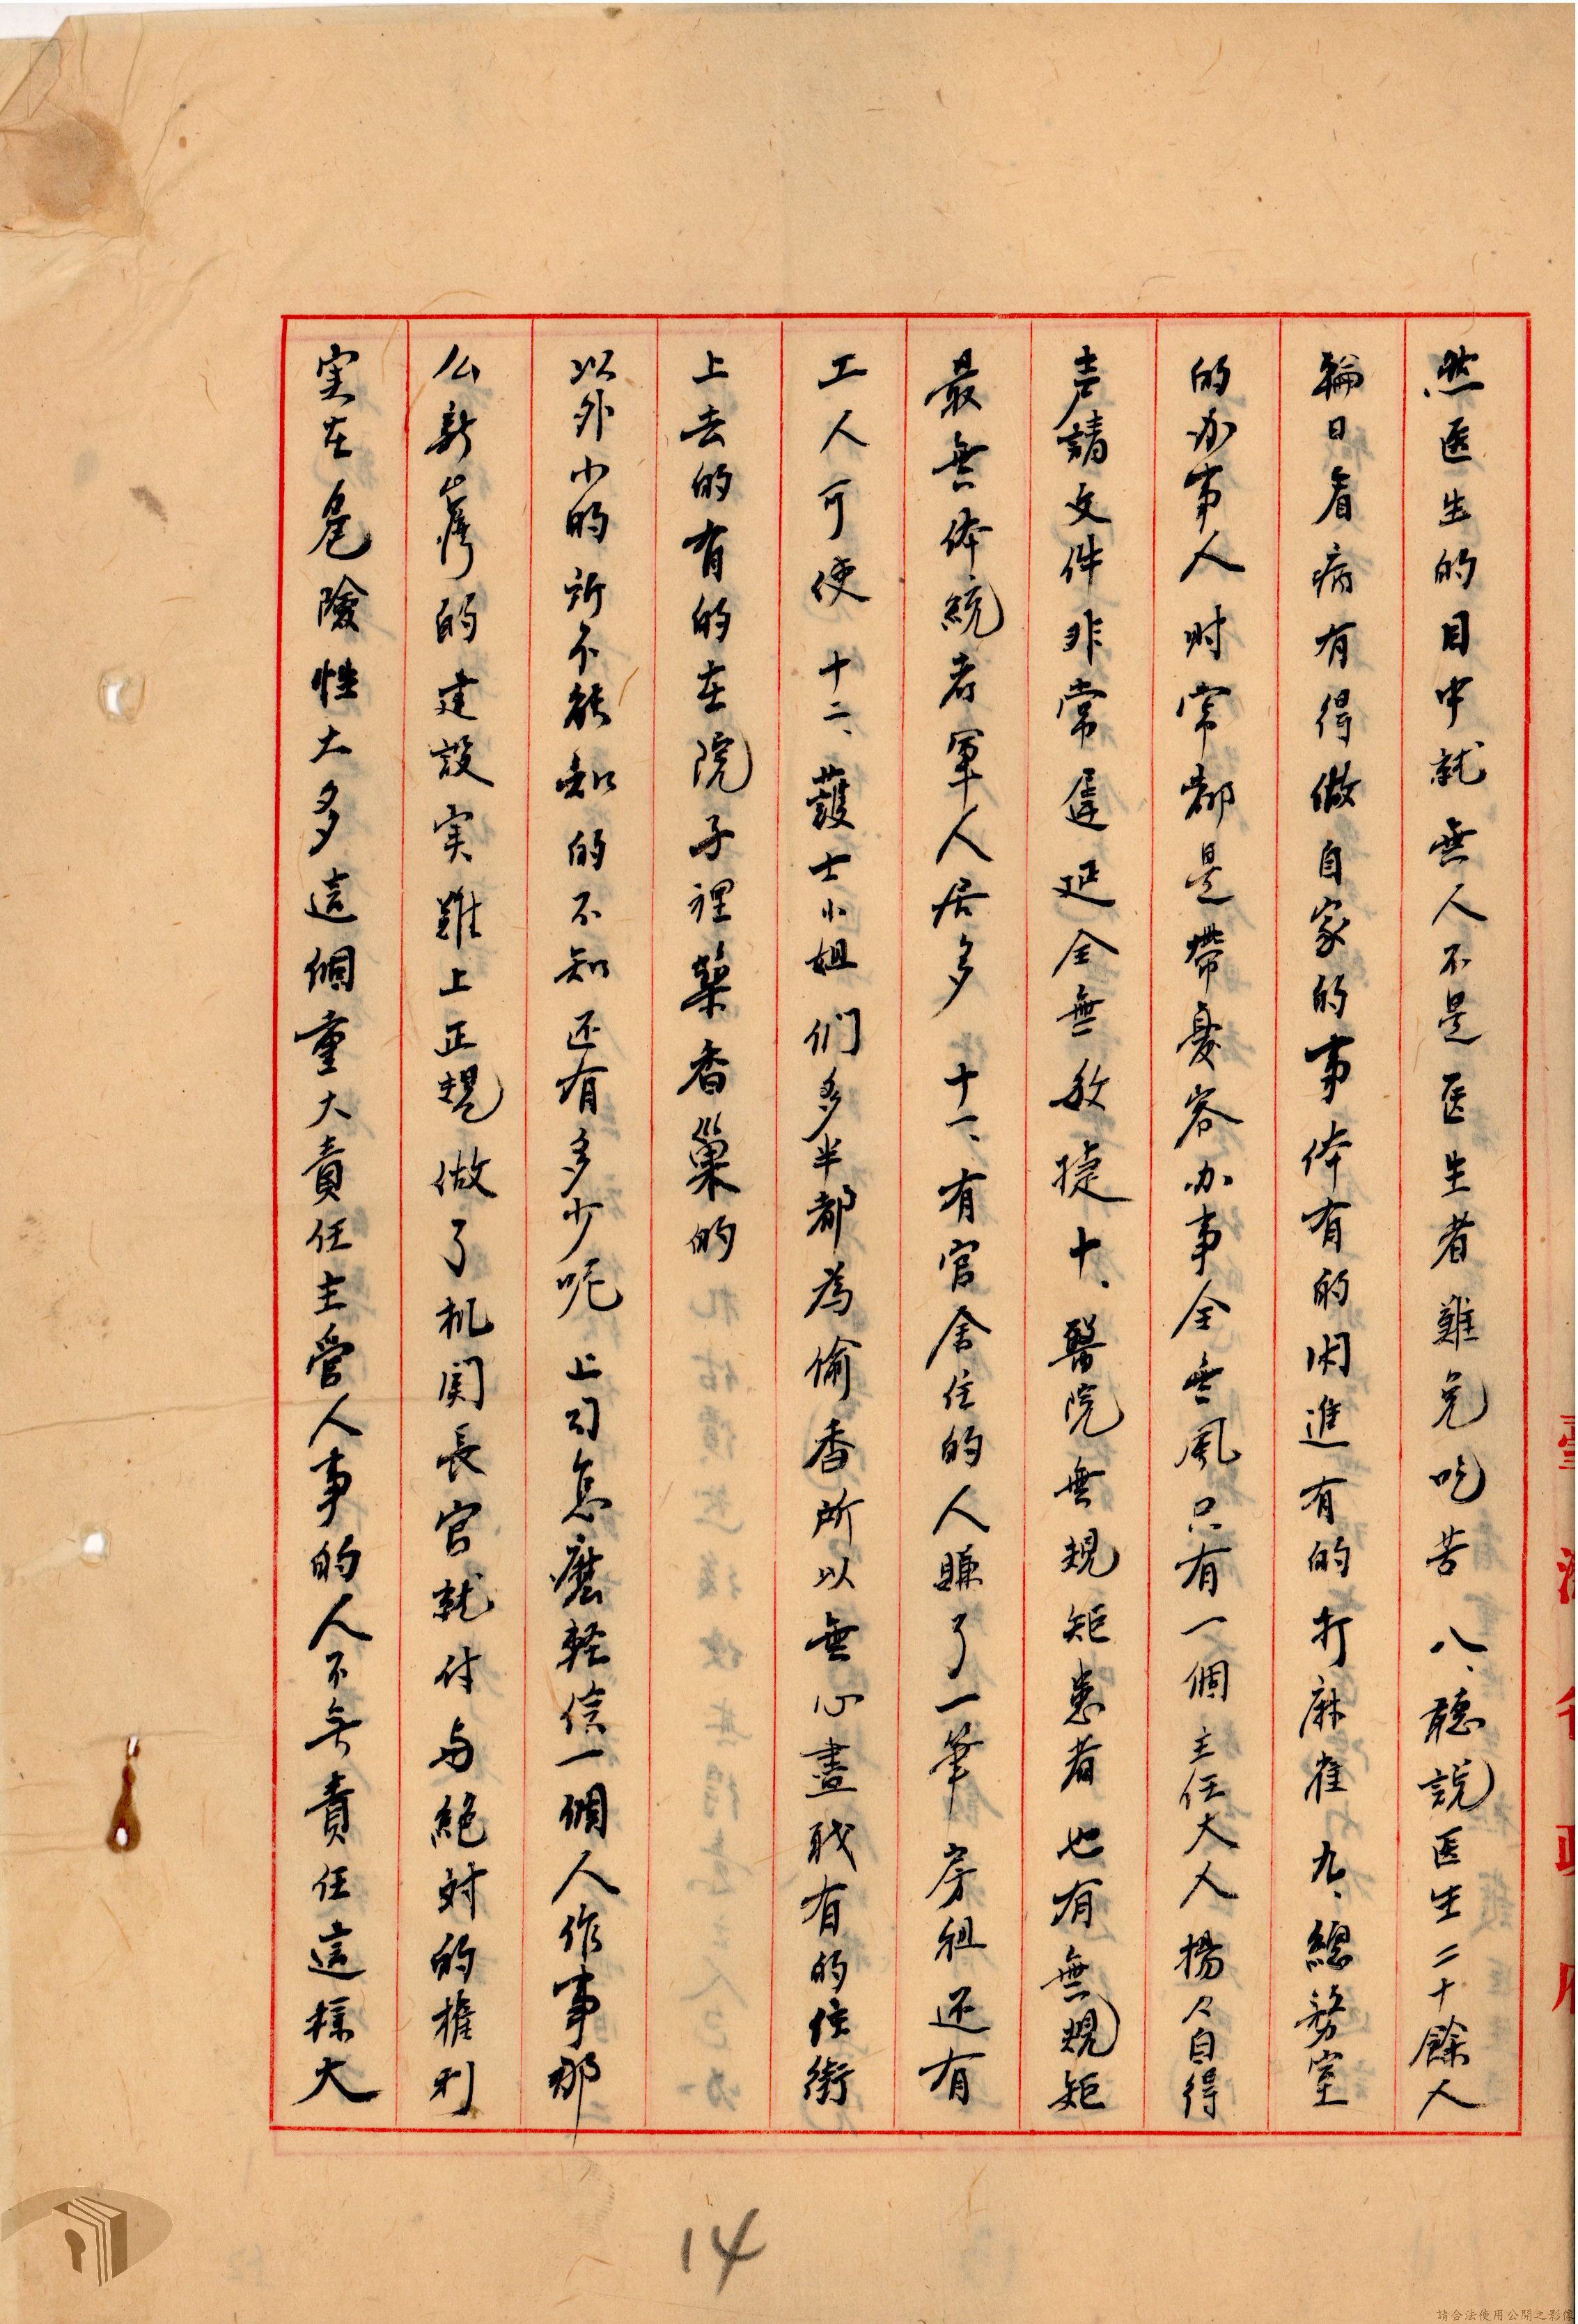 然医生的目中就無人不是医生者難免吃苦 八、聽説医生二十餘人
輪日看病有得做自家的事体有的闲進有的打麻雀 九、總務室
的办事人时常都是帶憂容办事全無風只有一個主任大人揚々自得
声請文件非常遅延全無敏捷 十、醫院無規矩患者也有無規矩
最無体統者軍人居多 十一、有官舍住的人賺了一筆房租还有
工人可使 十二、護士小姐们多半都為偷香所以無心盡職有的住街
上去的有的在院子裡築香巢的
以外小的所不能知的不知还有多少呢 上司怎麼輕信一個人作事那
么新台湾的建設实難上正規做了机関長官就付与絶対的権利
实在危險性太多這個重大責任主管人事的人不无責任這様大
14
請合法使用公開之影像